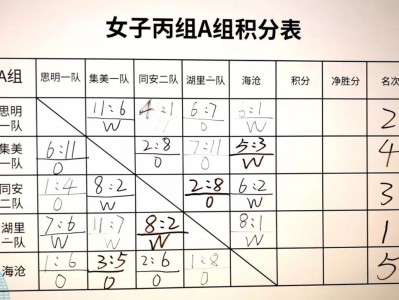 女子丙组A组积分表
A组 思明一队 集美一队 同安二队 湖里一队 海沧 积分 净胜分 名次
思明一队 11:6 W 4:1 6:7 0 6:1 W 2
集美一队 6:11 0 2:8 0 7:11 0 5:3 W 4
同安二队 1:4 0 8:2 W 2:8 0 6:2 W 3
湖里一队 7:6 W 11:7 W 8:2 W 8:1 W 1
海沧 1:6 0 3:5 0 2:6 0 1:8 0 5